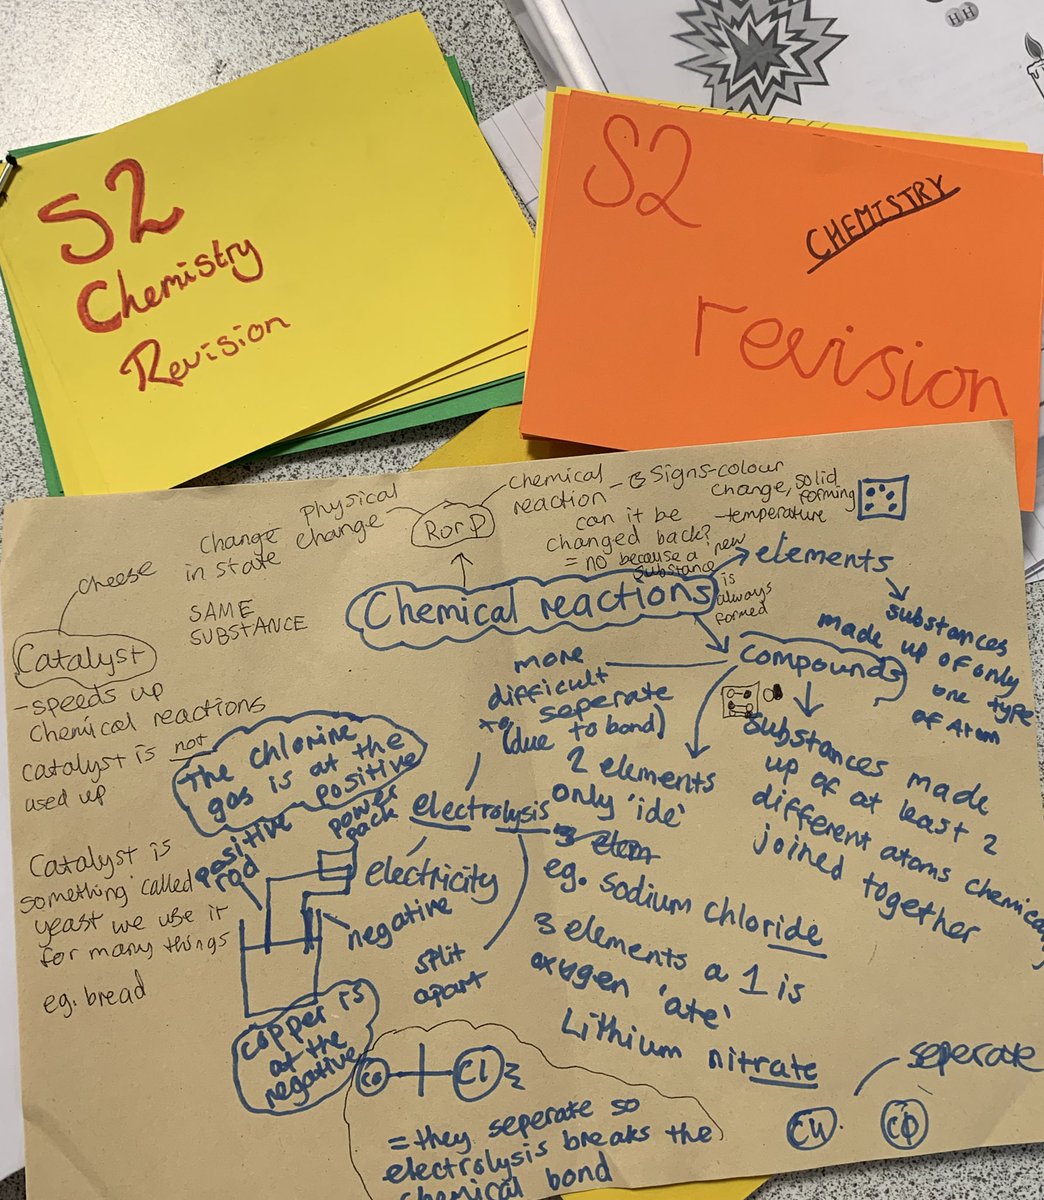 S2
Chemistry
Revision
S2
CHEMISTRY
revision
H H
physical
change
change
in state
SAME
SUBSTANCE
R or P
chemical
reaction
Signs - colour
change, solid
forming
- temperature
can it be
changed back?
= no because a new
substance
is
always
formed
Chemical reactions
elements
substances
made up of only
one type
of Atom
compounds
substances made
up of at least 2
different atoms
joined together
more
difficult
to seperate
(due to bond)
2 elements
only 'ide'
3 elem
eg. sodium chloride
3 elements a 1 is
oxygen 'ate'
Lithium nitrate
cheese
Catalyst
- speeds up
chemical reactions
catalyst is not
used up
Catalyst is
something called
yeast we use it
for many things
eg. bread
The chlorine
gas is at the
positive
positive
rod
power
pack
electrolysis
electricity
negative
split
apart
copper is
at the
negative
Cl
= they seperate so
electrolysis breaks the
chemical bond
seperate
Cu